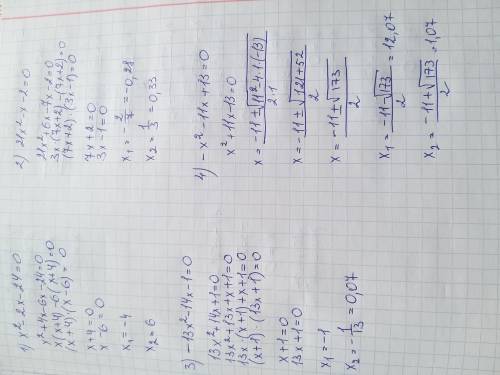 1) x²-2x-24=0
x²+4x-6x-24=0
x(x+4)-6(x+4)=0
(x+4)·(x-6)=0
x+4=0
x-6=0
x₁=-4
x₂=6
2) 21x²-x-2=0
21x²+6x-7x-2=0
3x·(7x+2)-(7x+2)=0
(7x+2)·(3x-1)=0
7x+2=0
3x-1=0
x₁=-2/7=-0,28
x₂=1/3=0,33
3) -13x²-14x-1=0
13x²+14x+1=0
13x²+13x+x+1=0
13x·(x+1)+x+1=0
(x+1)·(13x+1)=0
x+1=0
13x+1=0
x₁=-1
x₂=-1/13=0,07
4) -x²-11x+13=0
x²+11x-13=0
x=-11±√11²-4·1·(-13)/2·1
x=-11±√121+52/2
x=-11±√173/2
x₁=-11-√173/2=12,07
x₂=-11+√173/2=1,07